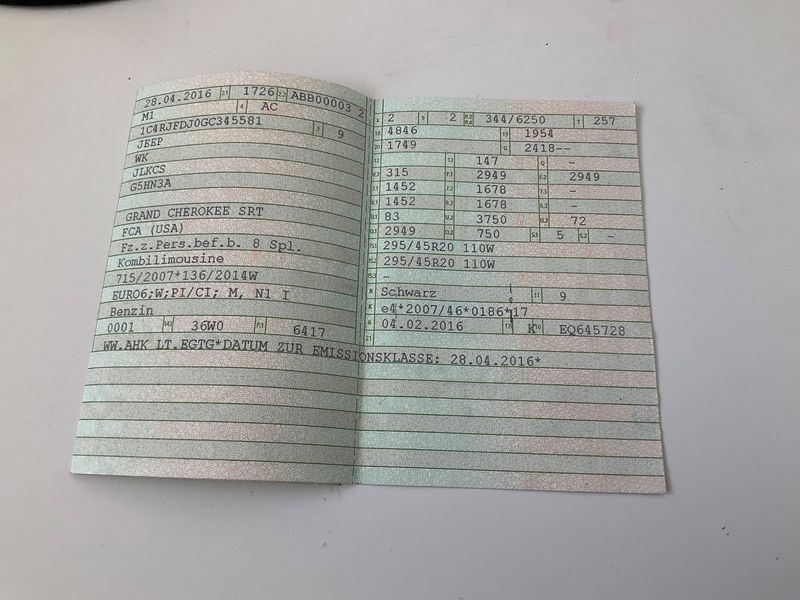 28.04.2016 2.1 1726 2.2 ABB00003 2
M1 4 AC
1C4RJFDJ0GC345581 3 9
JEEP
WK
JLKCS
G5HN3A
GRAND CHEROKEE SRT
FCA (USA)
Fz.z.Pers.bef.b. 8 Spl.
Kombilimousine
715/2007*136/2014W
EURO6;W;PI/CI; M, N1 I
Benzin
0001 36W0 P.1 6417
L 2 9 2 P.2 P.4 344/6250 T 257
18 4846 19 1954
20 1749 G 2418--
12 - 13 147 Q -
V.7 315 F.1 2949 F.2 2949
7.1 1452 7.2 1678 7.3 -
8.1 1452 8.2 1678 8.3 -
U.1 83 U.2 3750 U.3 72
O.1 2949 O.2 750 S.1 5 S.2 -
15.1 295/45R20 110W
15.2 295/45R20 110W
15.3 -
R Schwarz 11 9
K e4*2007/46*0186*17
6 04.02.2016 17 K 16 EQ645728
21
WW.AHK LT.EGTG*DATUM ZUR EMISSIONSKLASSE: 28.04.2016*